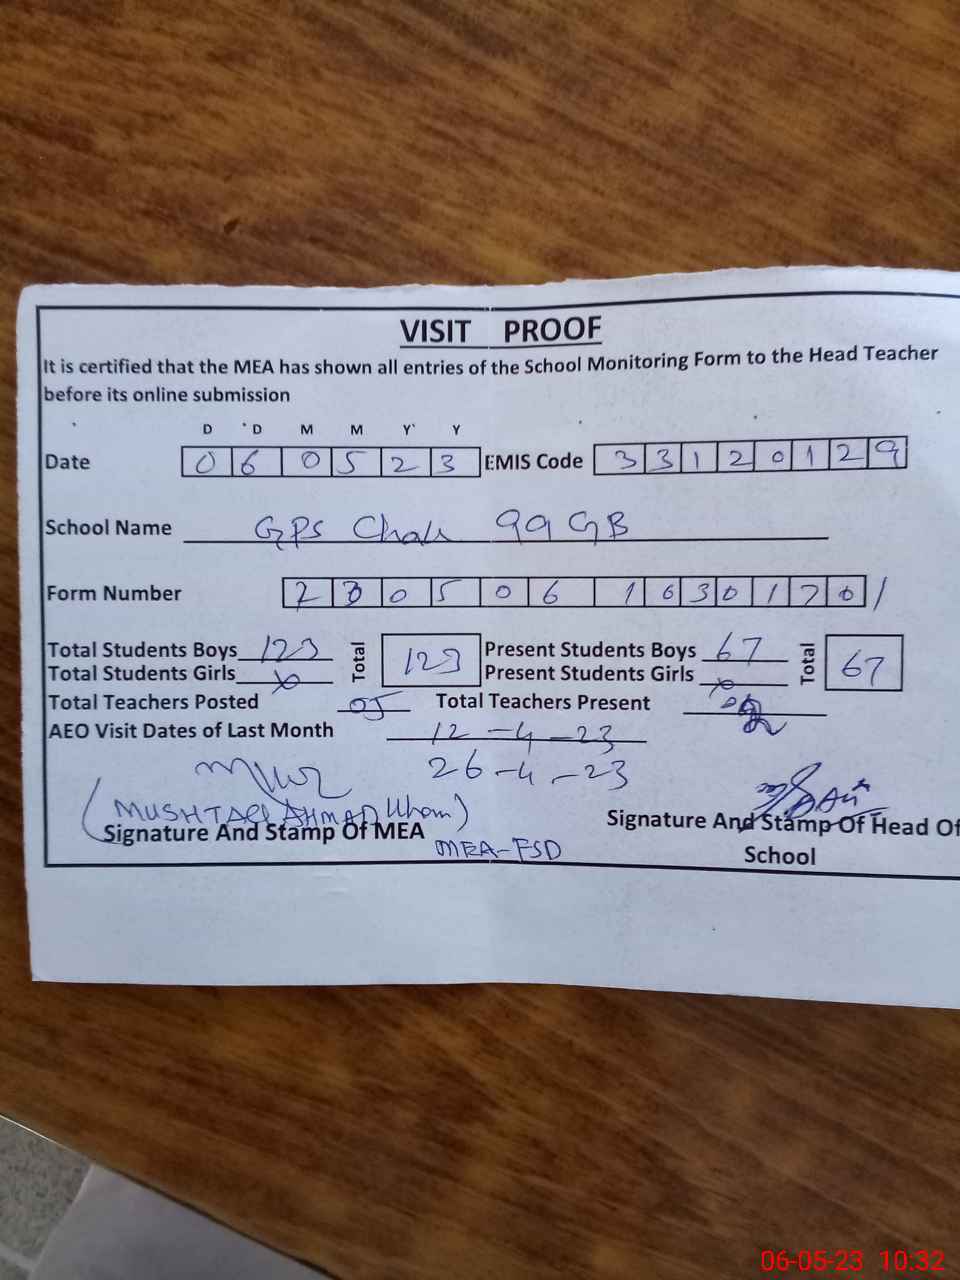 VISIT PROOF
It is certified that the MEA has shown all entries of the School Monitoring Form to the Head Teacher
before its online submission
D D M M Y Y
Date 0 6 0 5 2 3 EMIS Code 3 3 1 2 0 1 2 9
School Name GPS Chak 99 GB
Form Number 2 3 0 5 0 6 1 6 3 0 1 7 0 1
Total Students Boys 123 Total 123 Present Students Boys 67 Total 67
Total Students Girls x Present Students Girls x
Total Teachers Posted 05 Total Teachers Present
AEO Visit Dates of Last Month 12-4-23
26-4-23
(MUSHTAQ AHMAD
Signature And Stamp Of MEA
MEA-FSD
Signature And Stamp Of Head Of
School
06-05-23 10:32